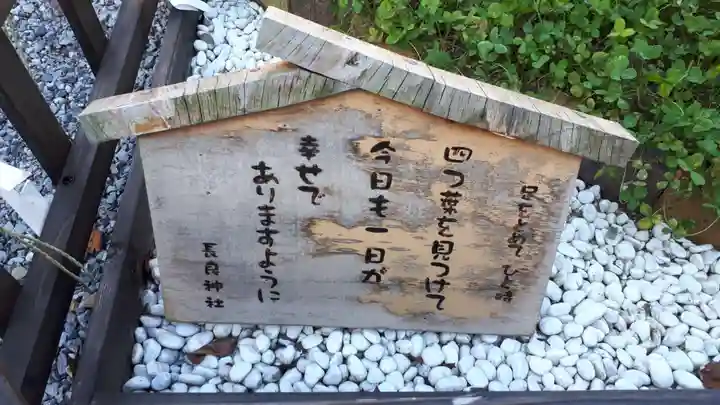 足をとめて ひと時
四つ葉を見つけて
今日も一日が
幸せで
ありますように
長良神社